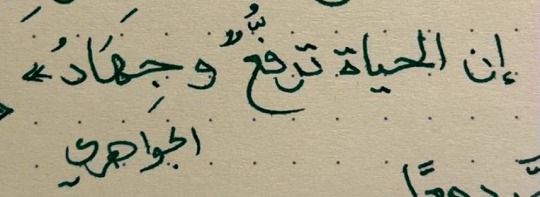 إن الحياة ترفُّعٌ وجِهَادُ»
الجواهري